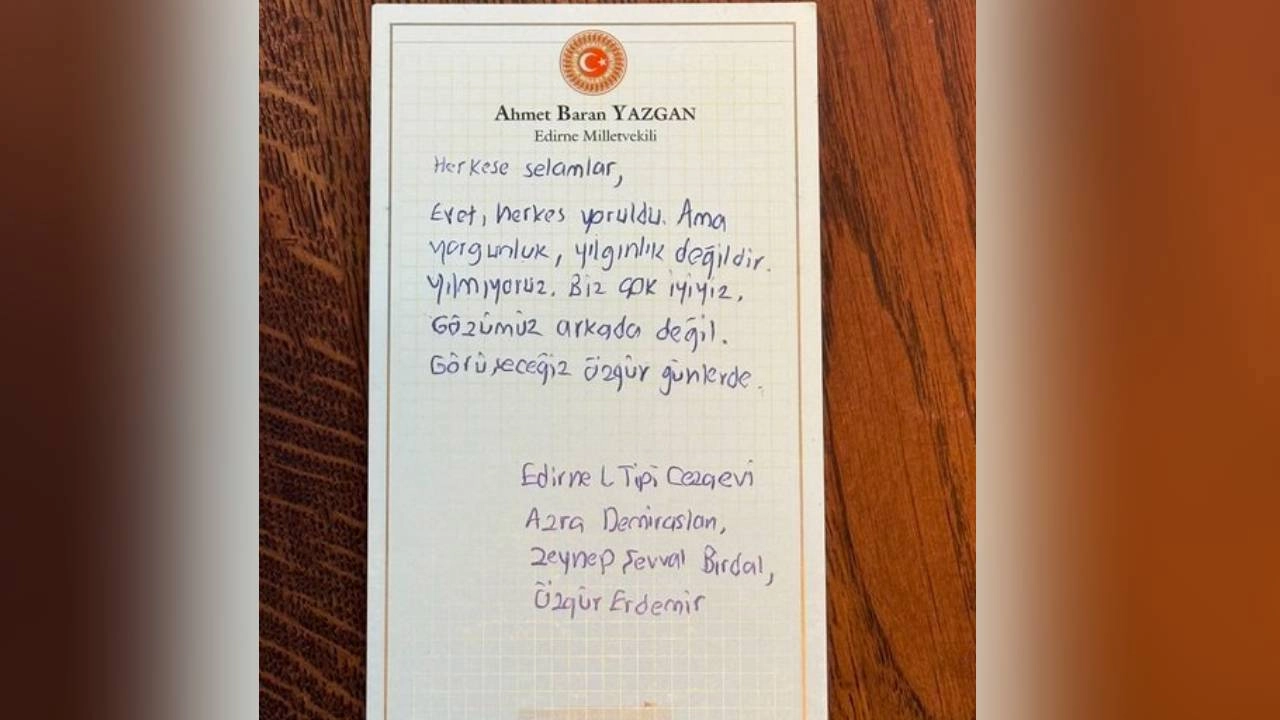 Ahmet Baran YAZGAN
Edirne Milletvekili
Herkese selamlar,
Evet, herkes yoruldu. Ama
yorgunluk, yılgınlık değildir.
Yılmıyoruz. Biz çok iyiyiz.
Gözümüz arkada değil.
Görüşeceğiz özgür günlerde.
Edirne L Tipi Cezaevi
Azra Demiraslan,
Zeynep Şevval Birdal,
Özgür Erdemir